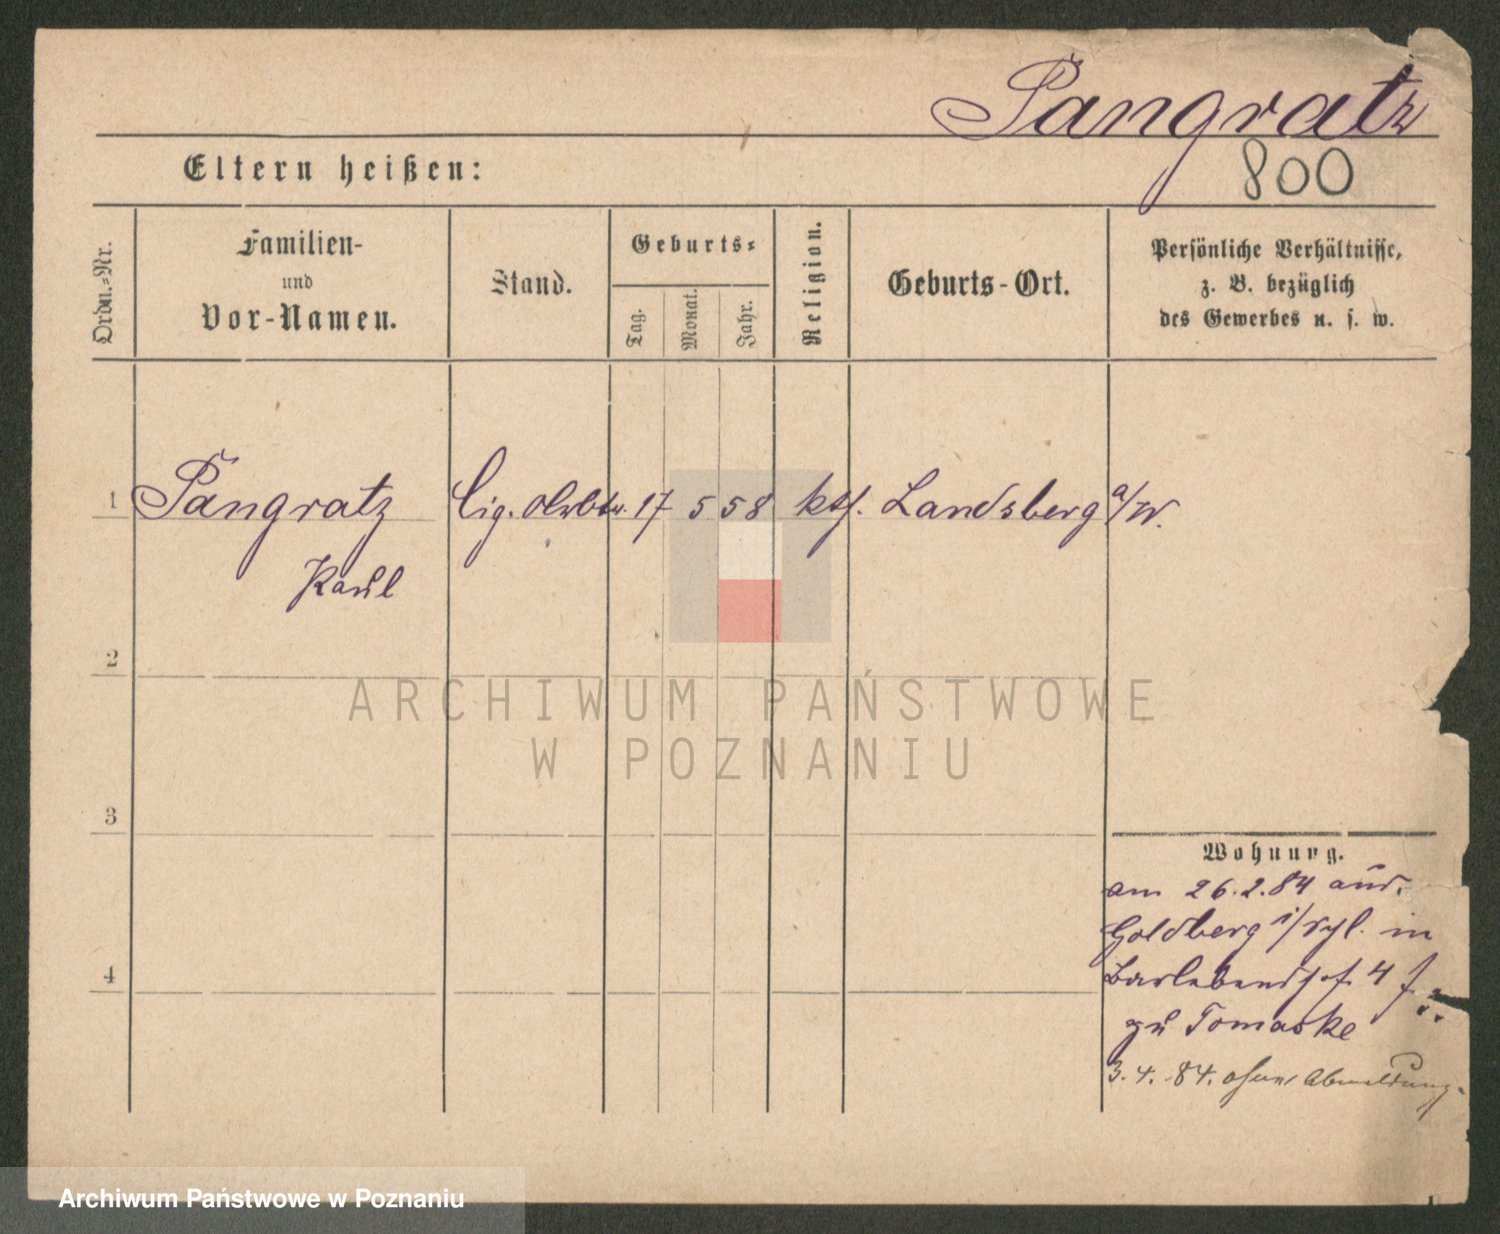 Pangratz
800
Eltern heißen:
Ordn.-Nr.
Familien-
und
Vor-Namen.
Stand.
Geburts-
Tag.
Monat.
Jahr.
Religion.
Geburts-Ort.
Persönliche Verhältnisse,
z. B. bezüglich
des Gewerbes u. s. w.
1 Pangratz Cig. 17 5 58 kth. Landsberg a/W.
Karl
2
ARCHIWUM PAŃSTWOWE
W POZNANIU
3
Wohnung.
am 26.2.84 aus
Goldberg i/Schl. in
4 4
zu Tomaske
3.4.84. ohne Abmeldung.
Archiwum Państwowe w Poznaniu